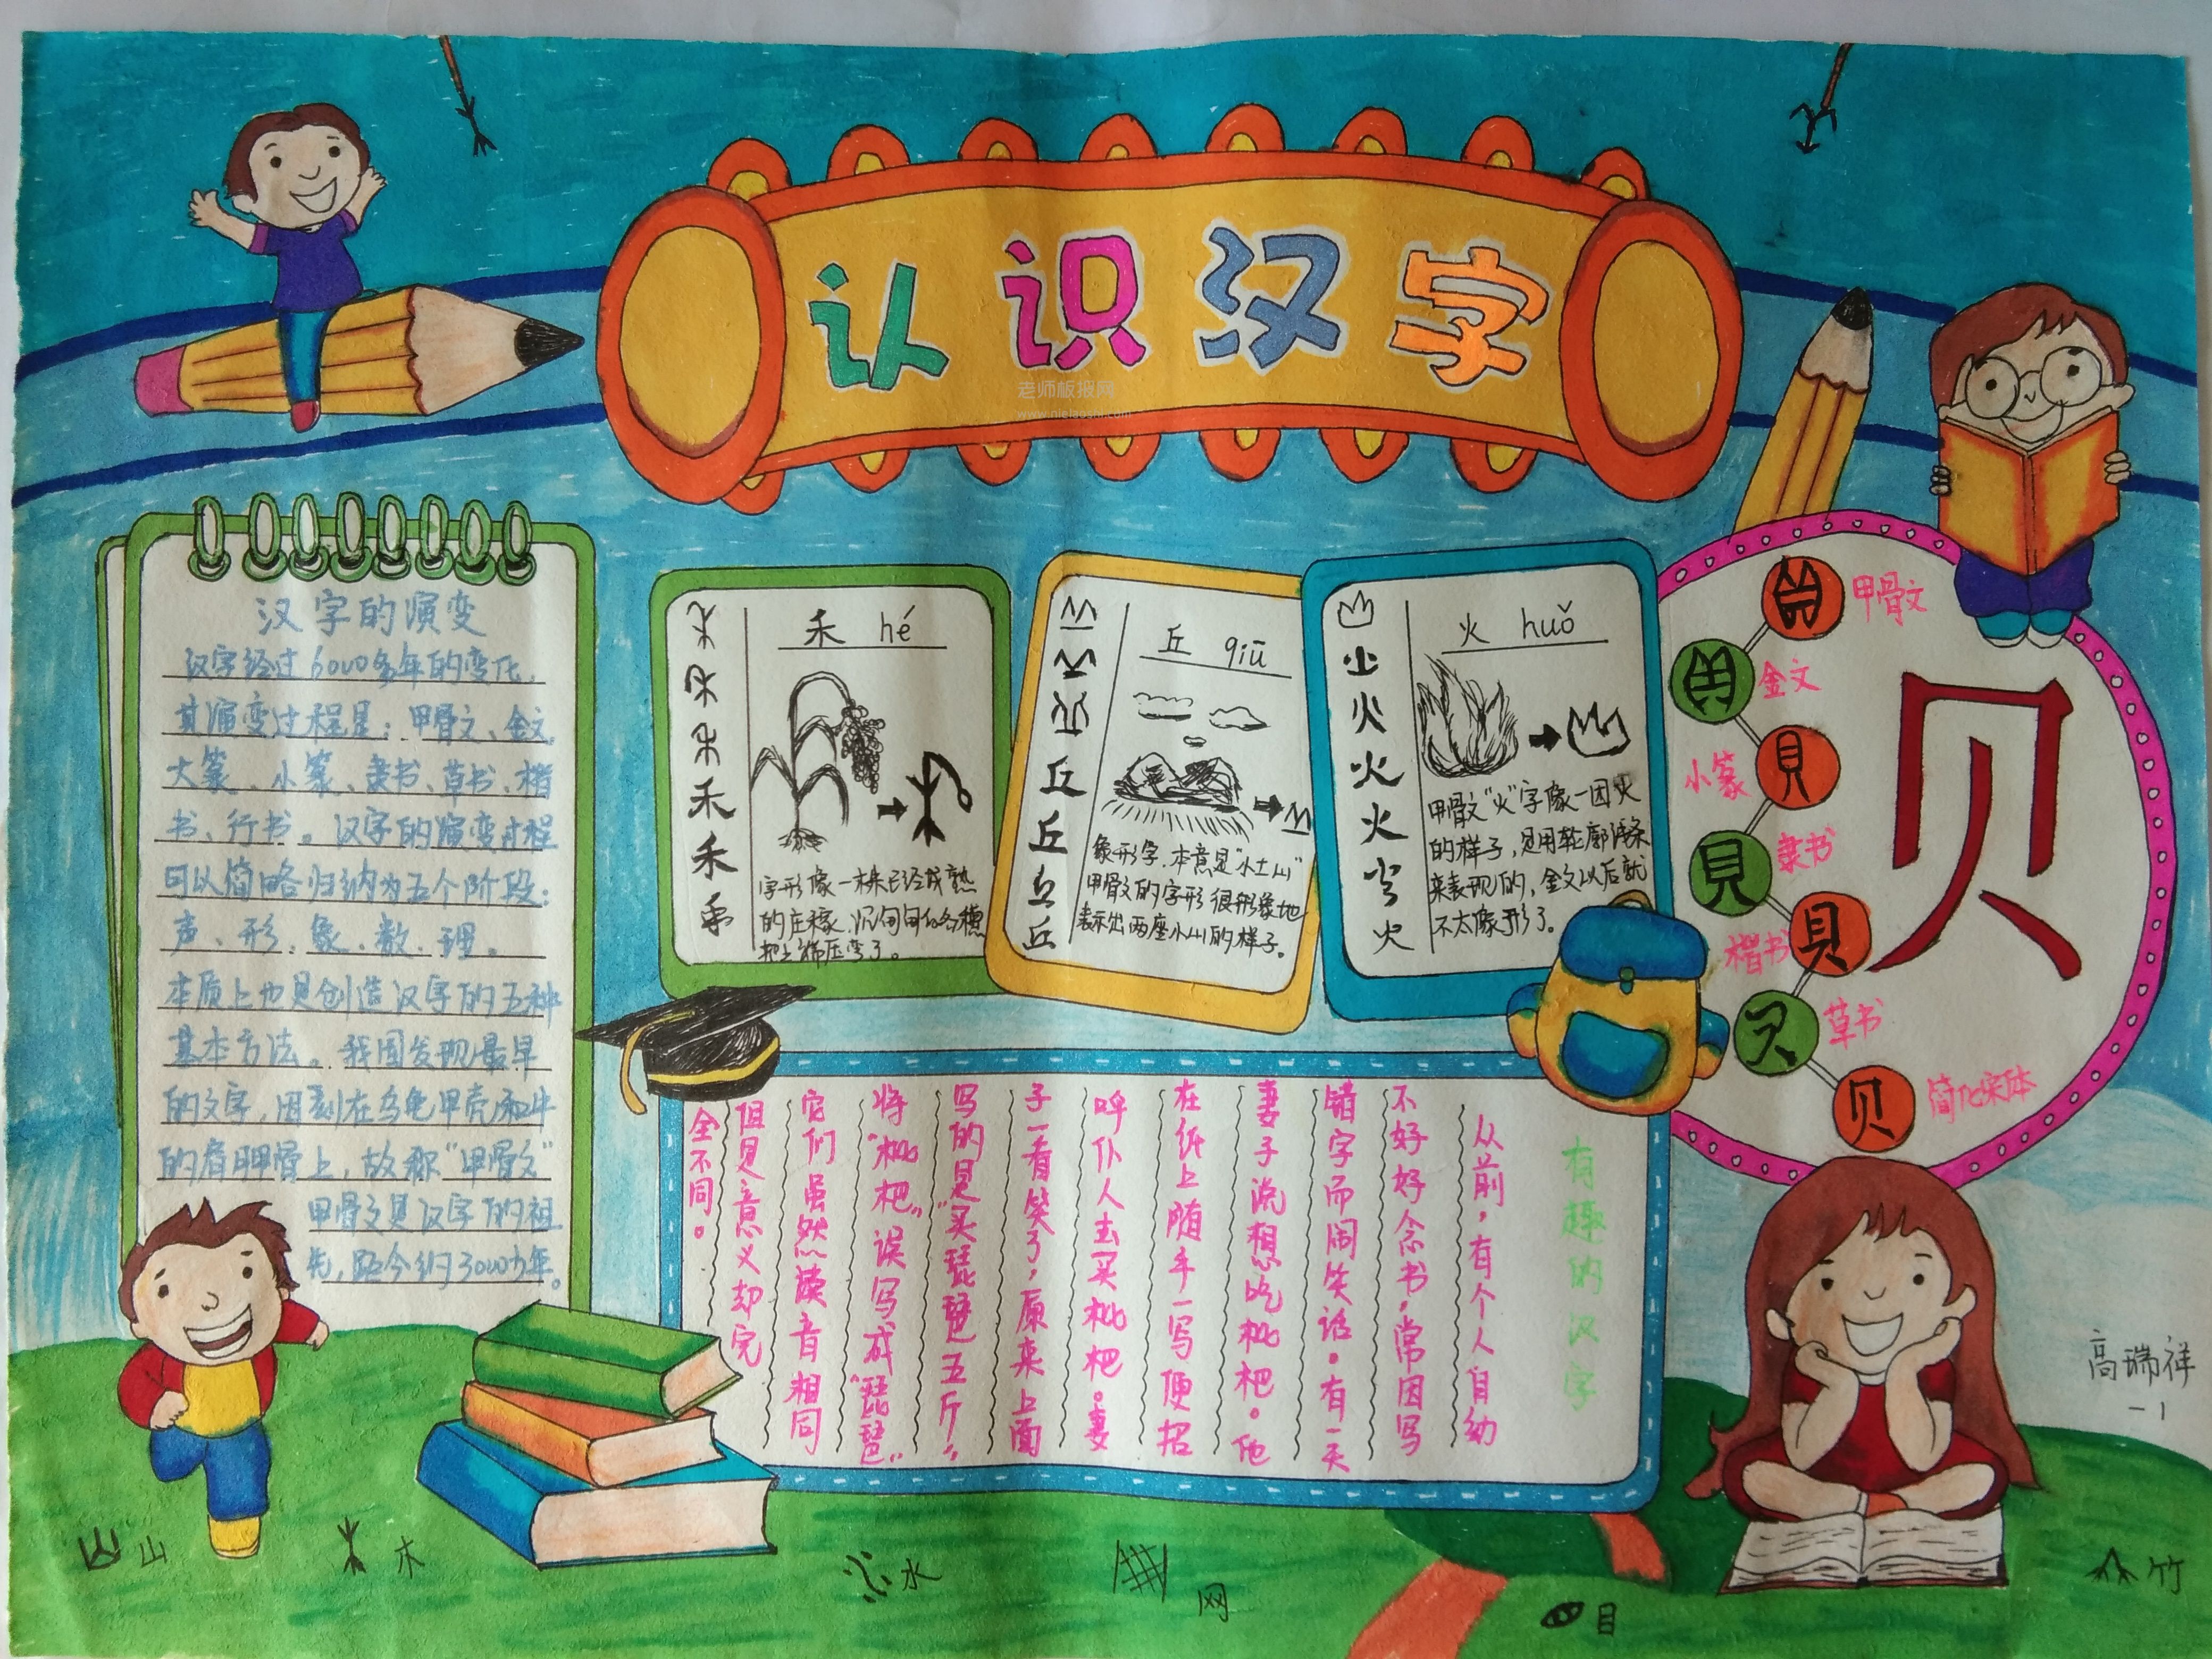 认识汉字
老师板报网
汉字的演变
汉字经过6000多年的变化,
其演变过程是:甲骨文、金文、
大篆、小篆、隶书、草书、楷
书、行书。汉字的演变过程
可以简略归纳为五个阶段:
声、形、象、数、理。
本质上也是创造汉字的五种
基本方法。我国发现最早
的文字,因刻在乌龟甲壳和牛
的肩胛骨上,故称"甲骨文"
甲骨文是汉字的祖
先,距今约3000少年。
禾 hé
禾
禾
字形像一株已经成熟
的庄稼.沉甸甸的谷穗
把上稍压弯了。
丘 qiū
丘
丘
丘
象形字.本意是"小土山"
甲骨文的字形很形象地
表示出两座小山的样子。
火 huǒ
火
火
火
火
甲骨文"火"字像一团火
的样子,是用轮廓线条
来表现的,金文以后就
不太像形了。
甲骨文
金文
小篆
隶书
楷书
草书
简化宋体
貝
貝
貝
贝
贝
有趣的汉字
从前,有个人自幼
不好好念书,常因写
错字而闹笑话。有一天
妻子说想吃枇杷。他
在纸上随手一写便招
呼仆人去买枇杷。妻
子一看笑了,原来上面
写的是"买琵琶五斤"
将"枇杷"误写成"琵琶"
它们虽然读音相同
但是意义却完
全不同。
高瑞祥
一1
山
木
水
网
目
竹